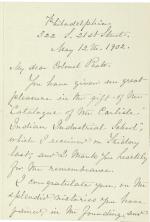 Philadelphia
322 S. 21st Street.
May 12th. 1902.
My dear Colonel Pratt.
You have given me great
pleasure in the gift of the
Catalogue of the Carlisle
Indian Industrial School
which I received on
last; and I thank you heartily
for the remembrance.
I congratulate you, on the
splendid victories you have
in the founding and